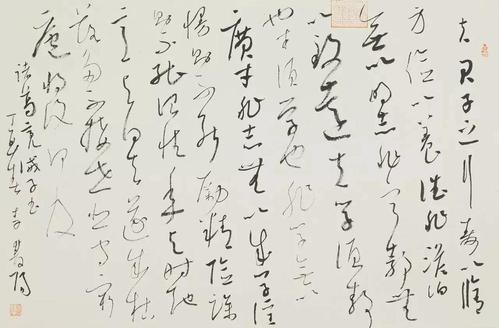 夫君子之行靜以脩
身儉以養德非澹泊
無以明志非寧靜無
以致遠夫學須靜
也才須學也非學無以
廣才非志無以成學淫
慢則不能勵精險躁
則不能治性年與時馳
意與日去遂成枯
落多不接世悲守窮
廬將復何及
諸葛亮誡子書
丁酉 李雙陽